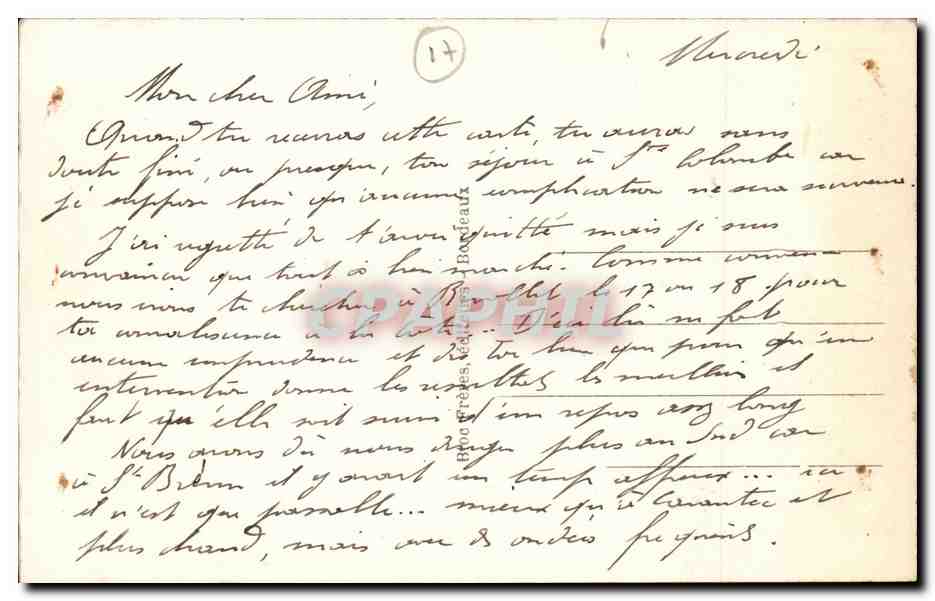 17
Mercredi
Mon cher Ami,
Quand tu recevras cette carte, tu auras sans
doute fini, ou presque, ton séjour à Ste Colombe car
je suppose bien qu'aucune complication ne sera survenue.
J'ai regretté de t'avoir quitté mais je suis
convaincu que tout a bien marché. Comme convenu
nous irons te chercher à le 17 ou 18. pour
ta convalescence à la côte... D'ici là ne fait
aucune imprudence et dis toi bien que pour qu'une
intervention donne les résultats les meilleurs il
faut qu'elle soit suivie d'un repos assez long
Nous avons dû nous diriger plus au Sud car
à St il y avait un temps affreux... ici
il n'est que passable... mieux qu'à Carantec et
plus chaud, mais avec des ondées fréquentes.
Bloc Frères, éditeurs - Bordeaux
CPAPHIL